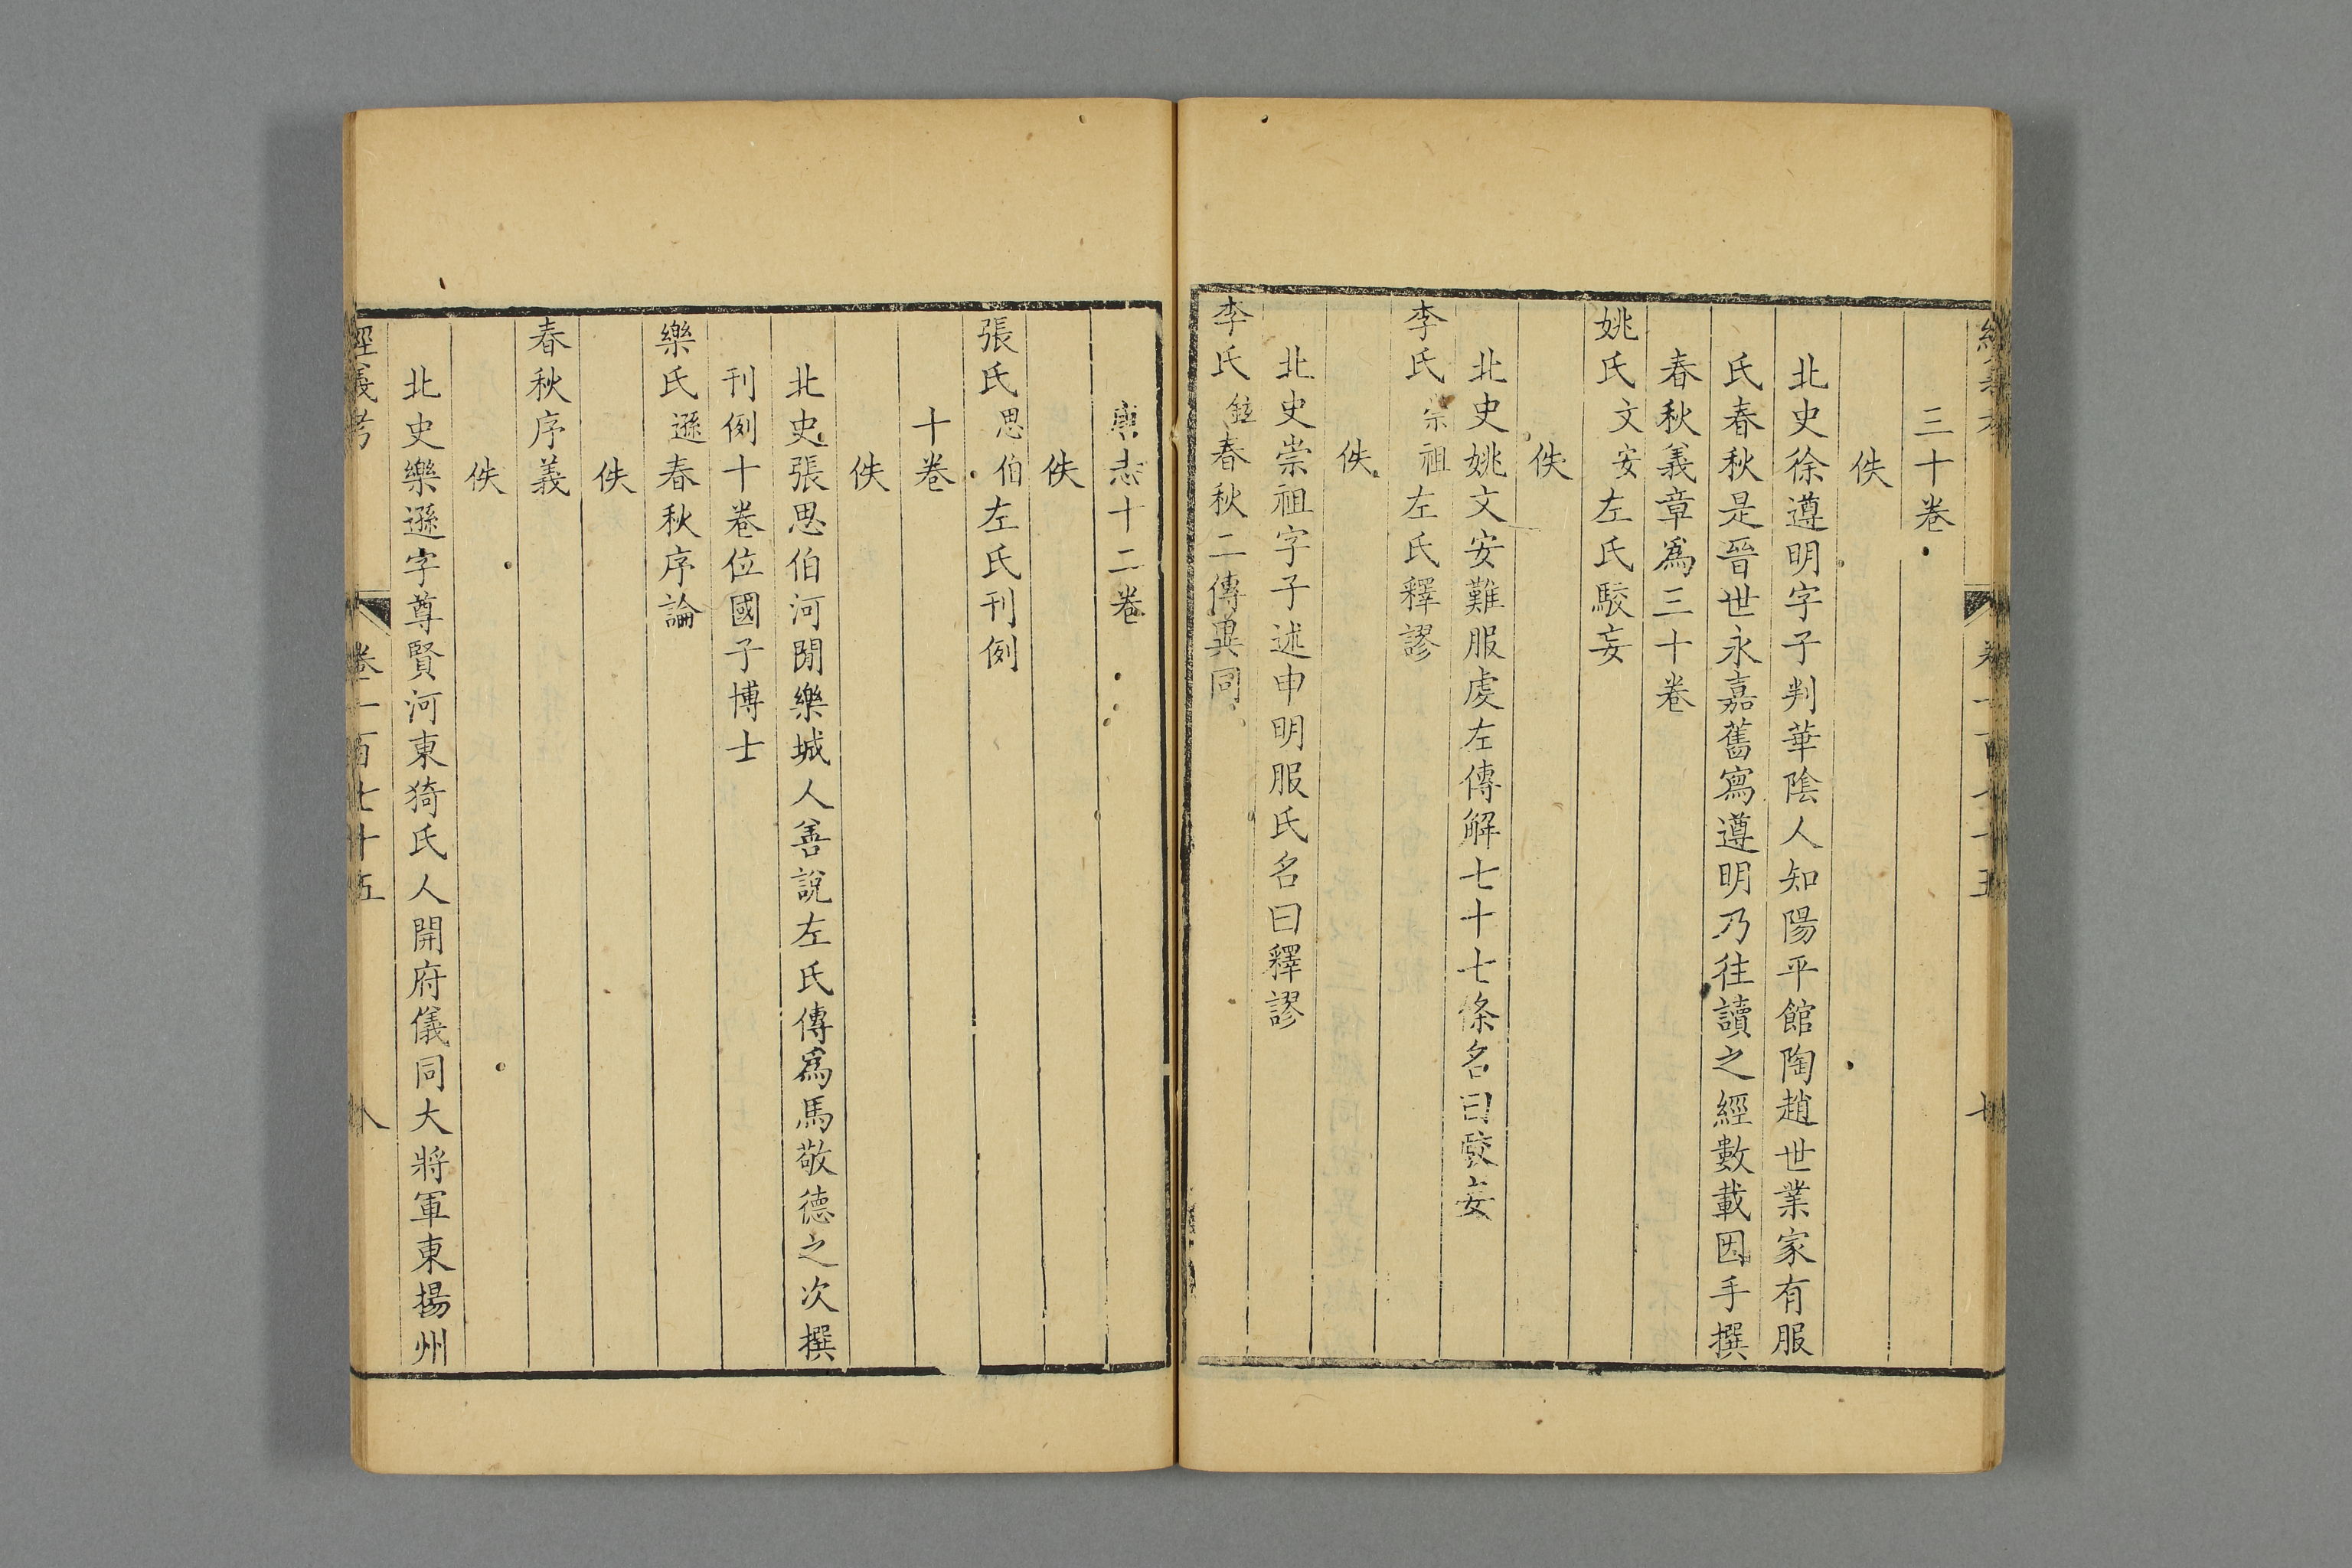 三十卷
佚
北史徐遵明字子判華陰人知陽平館陶趙世業家有服
氏春秋是晉世永嘉舊寫遵明乃往讀之經數載因手撰
春秋義章爲三十卷
姚氏文安左氏駮妄
佚
北史姚文安難服虔左傳解七十七條名曰駮妄
李氏崇祖左氏釋謬
佚
北史崇祖字子述申明服氏名曰釋謬
李氏鉉春秋二傳異同
志十二卷
佚
張氏思伯左氏刊例
十卷
佚
北史張思伯河閒樂城人善說左氏傳爲馬敬德之次撰
刊例十卷位國子博士
樂氏遜春秋序論
佚
春秋序義
佚
北史樂遜字尊賢河東猗氏人開府儀同大將軍東揚州
經義考 卷一百七十五 八